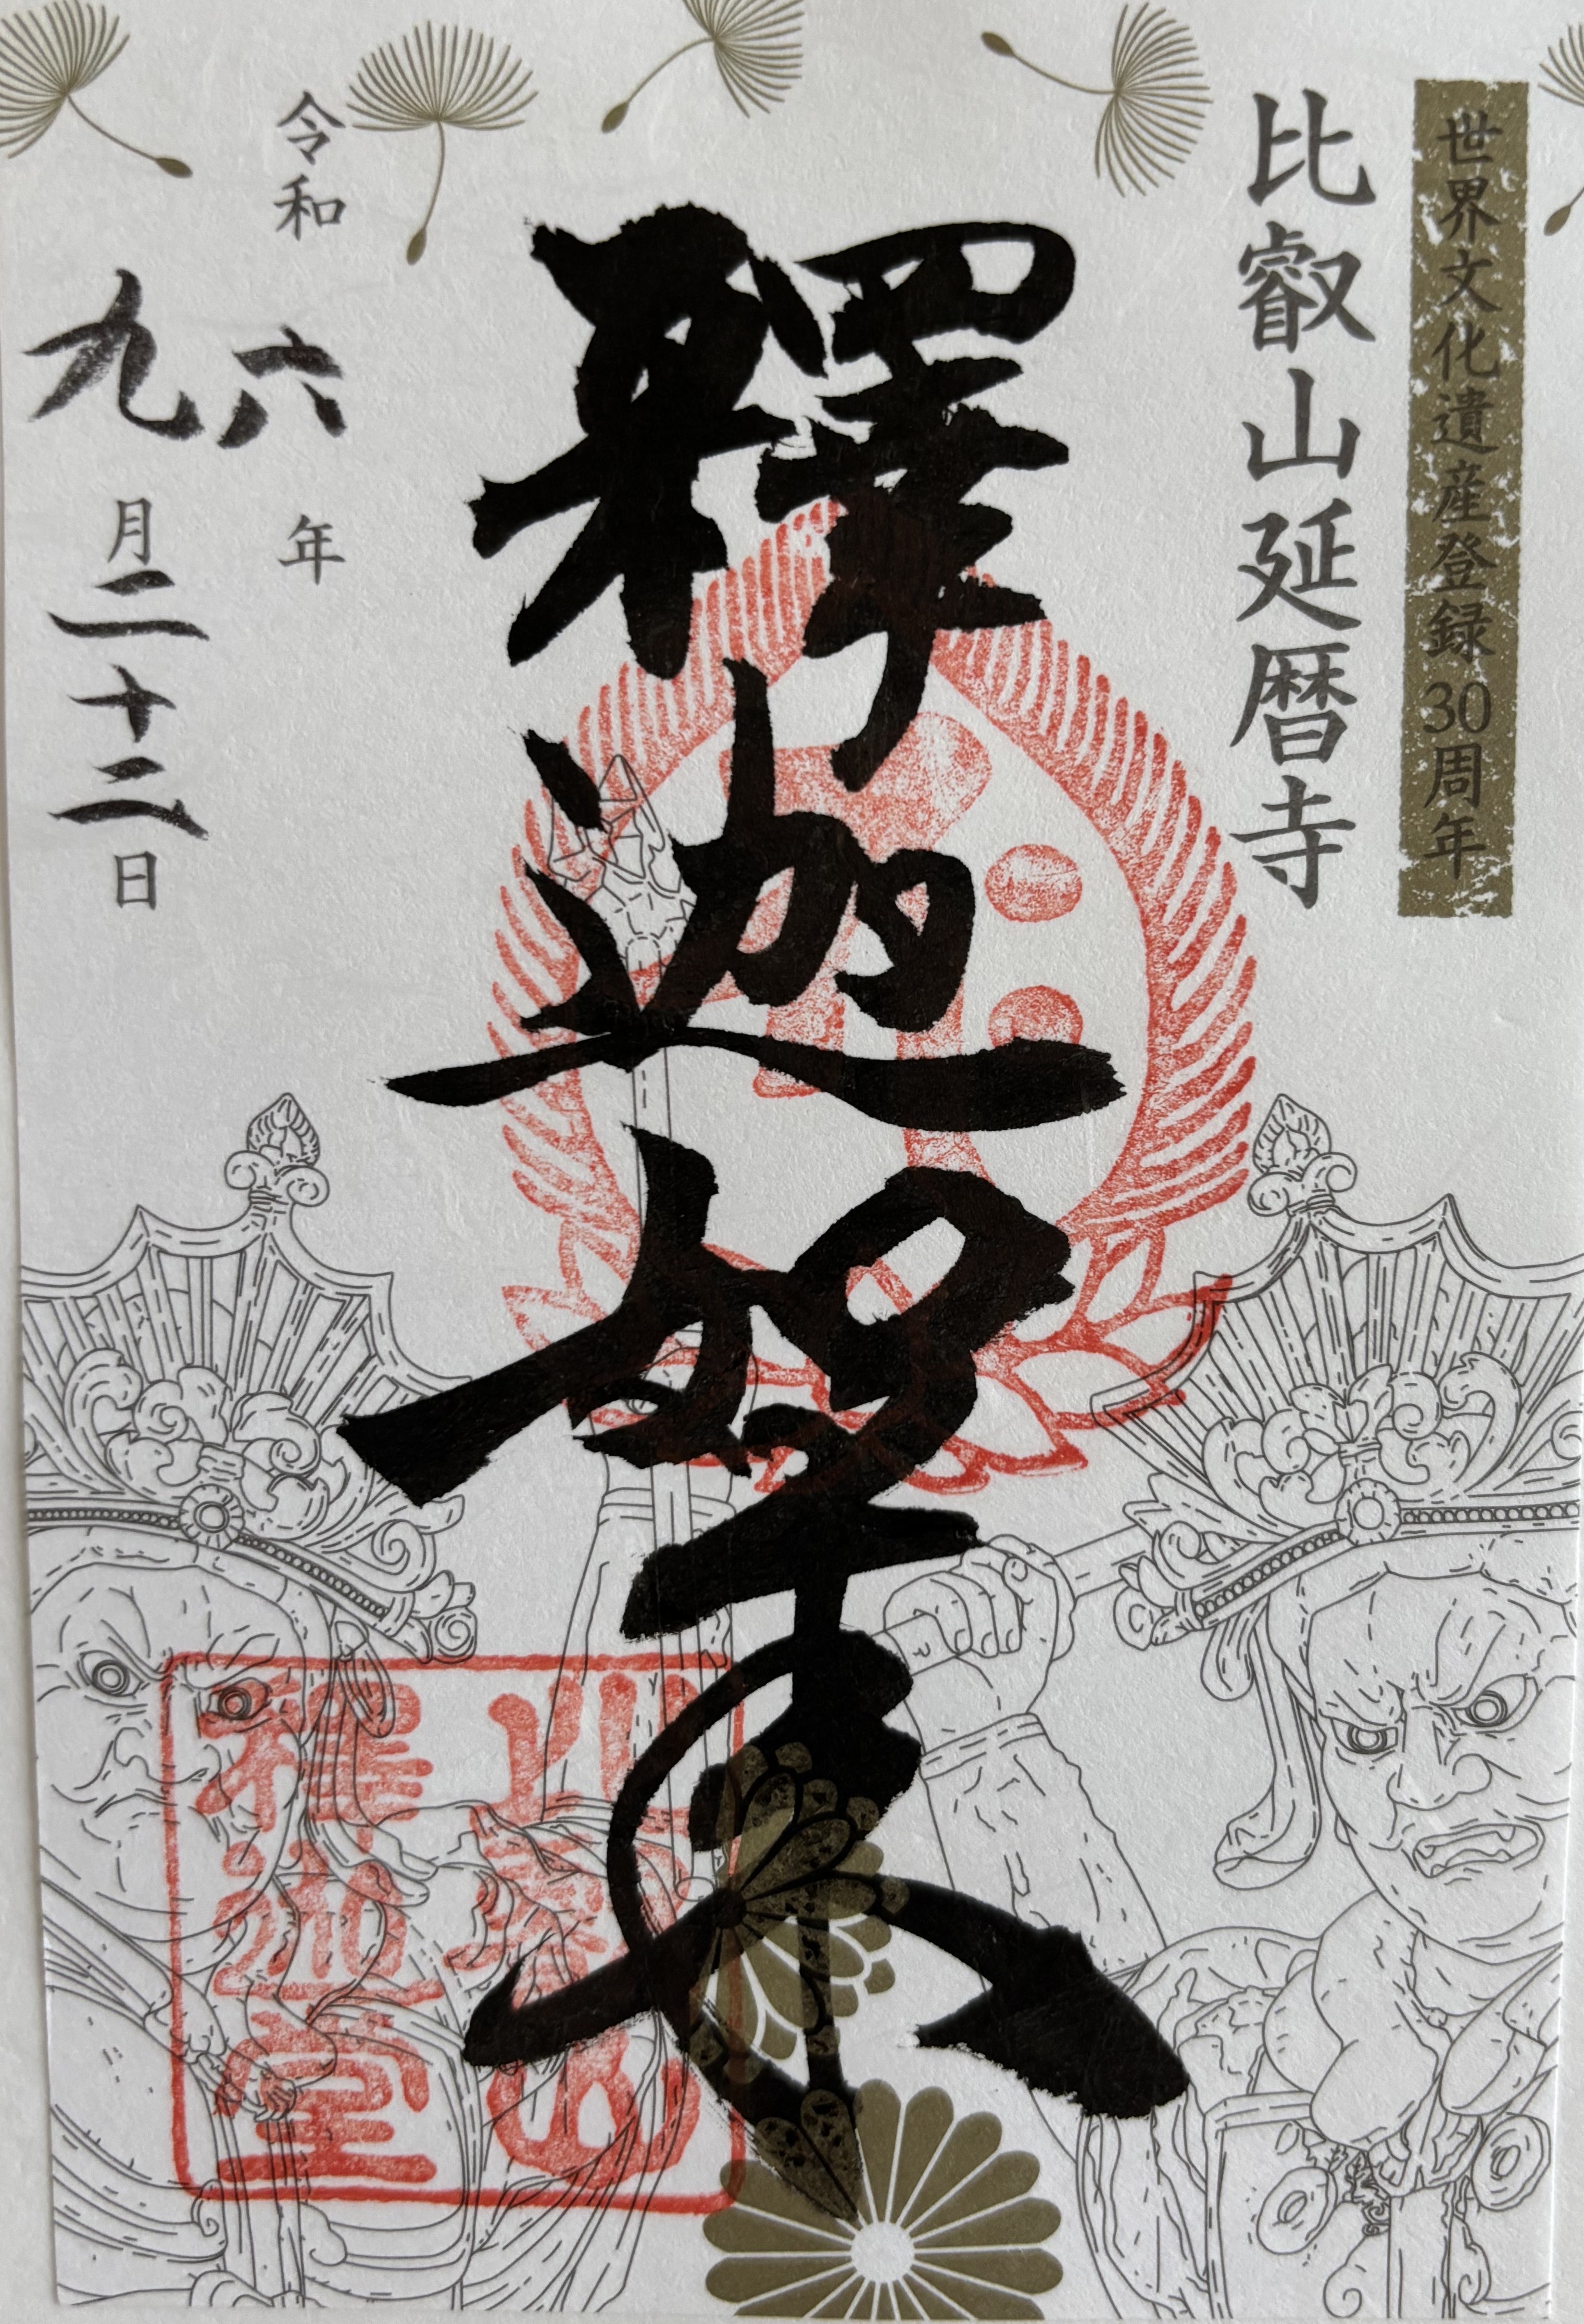 世界文化遺産登録30周年
比叡山延暦寺
釋迦如来
比叡山
釋迦堂
令和六年
九月二十二日